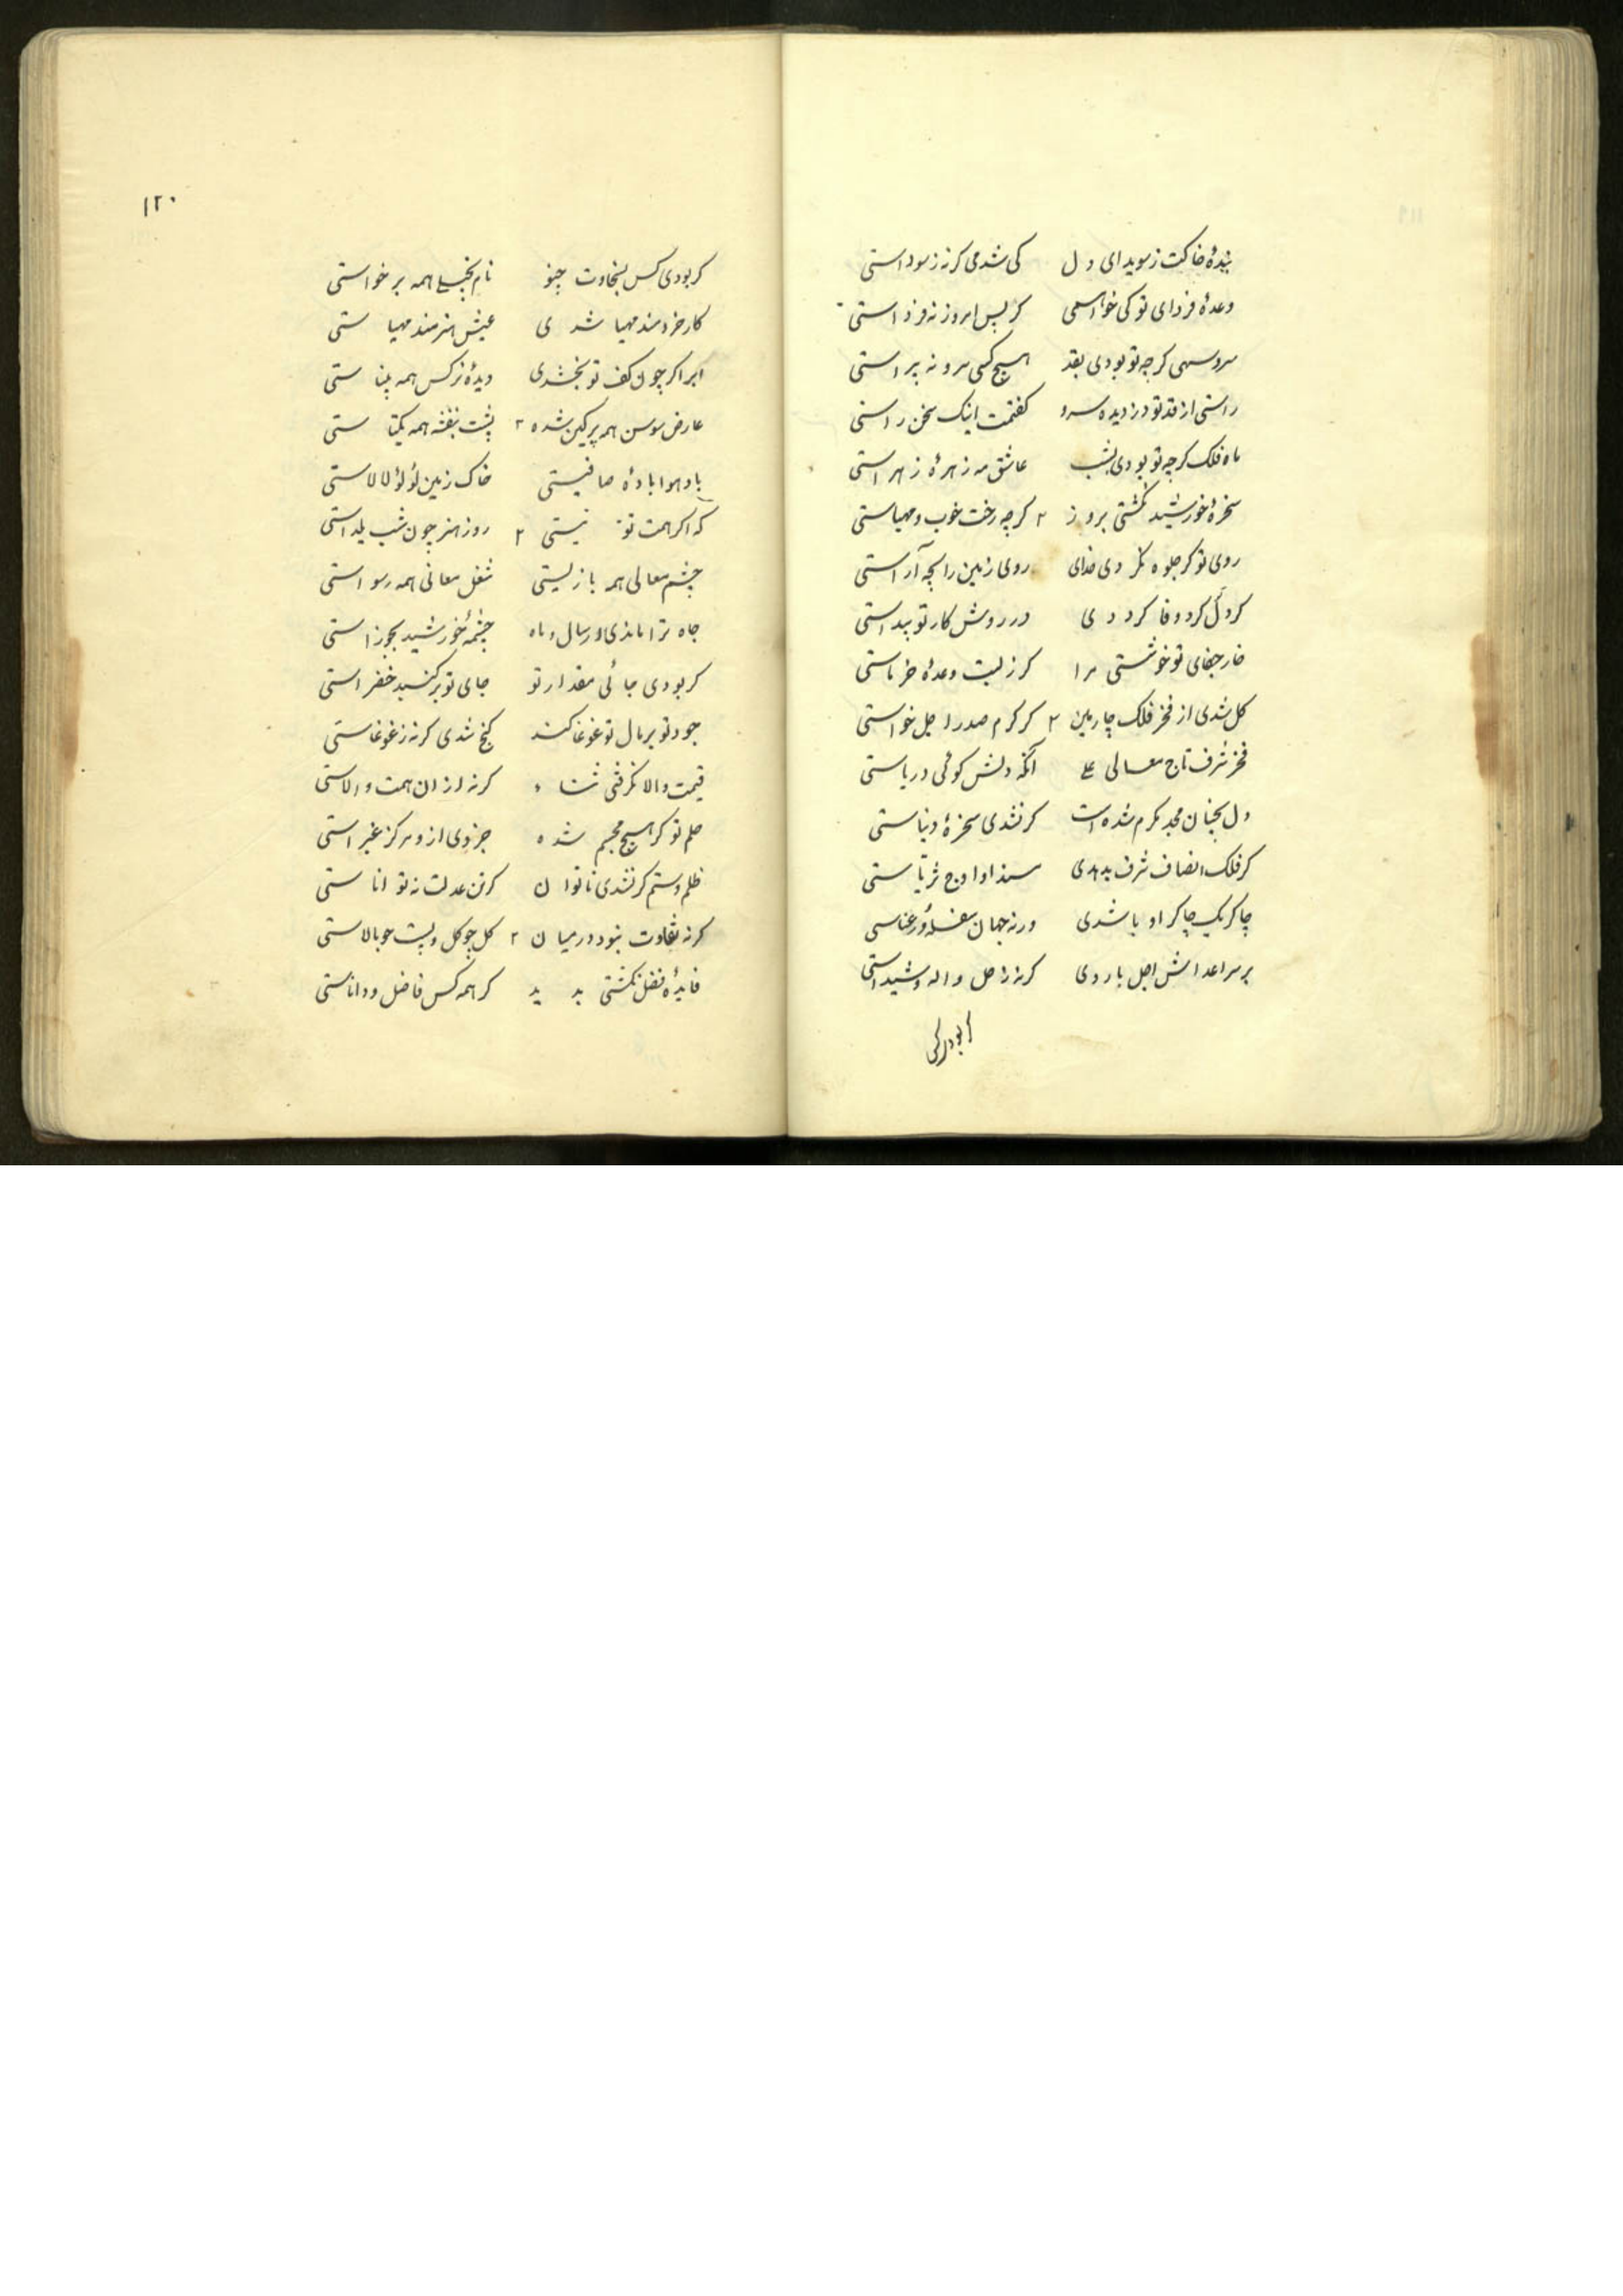 بندهٔ خاکت ز سویدای دل کی شدمی کرنه ز سوداستی
وعدهٔ فردای تو کی خواهمی کر پس امروز نه فرداستی
سرو سهی کرچه تو بودی بقد هیچ کسی سرو نه پیراستی
راستی از قد تو دزدیده سرو کفتمت اینک سخن راستی
ماه فلک کرچه تو بودی بشب عاشق مه زهرهٔ زهراستی
سخرهٔ خورشید نکشتی بروز کرچه رخت خوب و مهیاستی
روی تو کر جلوه نکردی خدای روی زمین را بچه آراستی
کر دل کر دوفا کرددی در روش کار تو پیداستی
خار جفای تو خوشستی مرا کر ز لبت وعدهٔ خرماستی
کل شدی از فخر فلک چارمین کر کرم صدر اجل خواستی
فخر شرف تاج معالی علی آنکه دلش کوئی دریاستی
دل بچنان مجد مکرم شده است کر نشدی سخرهٔ دنیاستی
کر فلک انصاف شرف بدهدی مسند او اوج ثریاستی
چاکر یک چاکر او باشدی ورنه جهان سفله و رعناستی
بر سر اعداش اجل باردی کرنه اجل واله و شیداستی
کر بودی کس
۱۲۰
کر بودی کس بسخاوت چنو نام بخیلی همه برخواستی
کار خردمند مهیا شدی عیش هنرمند مهیاستی
ابر اکر چون کف تو بخشدی دیدهٔ نرکس همه بیناستی
عارض سوسن همه پرکین شده پشت بنفشه همه یکتاستی
باد هوا بادهٔ صافیستی خاک زمین لؤلؤ لالاستی
که اکر همت تو نیستی روز هنر چون شب یلداستی
چشم معالی همه بازیستی شغل معانی همه رسواستی
جاه ترا ماندی اورسال و ماه چشمهٔ خورشید بجوزاستی
کر بودی جائی مقدار تو جای تو بر کنبد خضراستی
جود تو بر مال تو غوغا کند کنج شدی کرنه ز غوغاستی
قیمت والا نکرفتی ثناء کرنه از ان همت والاستی
حلم تو کر هیچ مجسم شده جزوی ازو مرکز غبراستی
ظلم و ستم کر نشدی ناتوان کرتن عدلت نه تواناستی
کرنه تفاوت بنود در میان کل چو کل و پست چو بالاستی
فایدهٔ فضل نکشتی پدید کر همه کس فاضل و داناستی